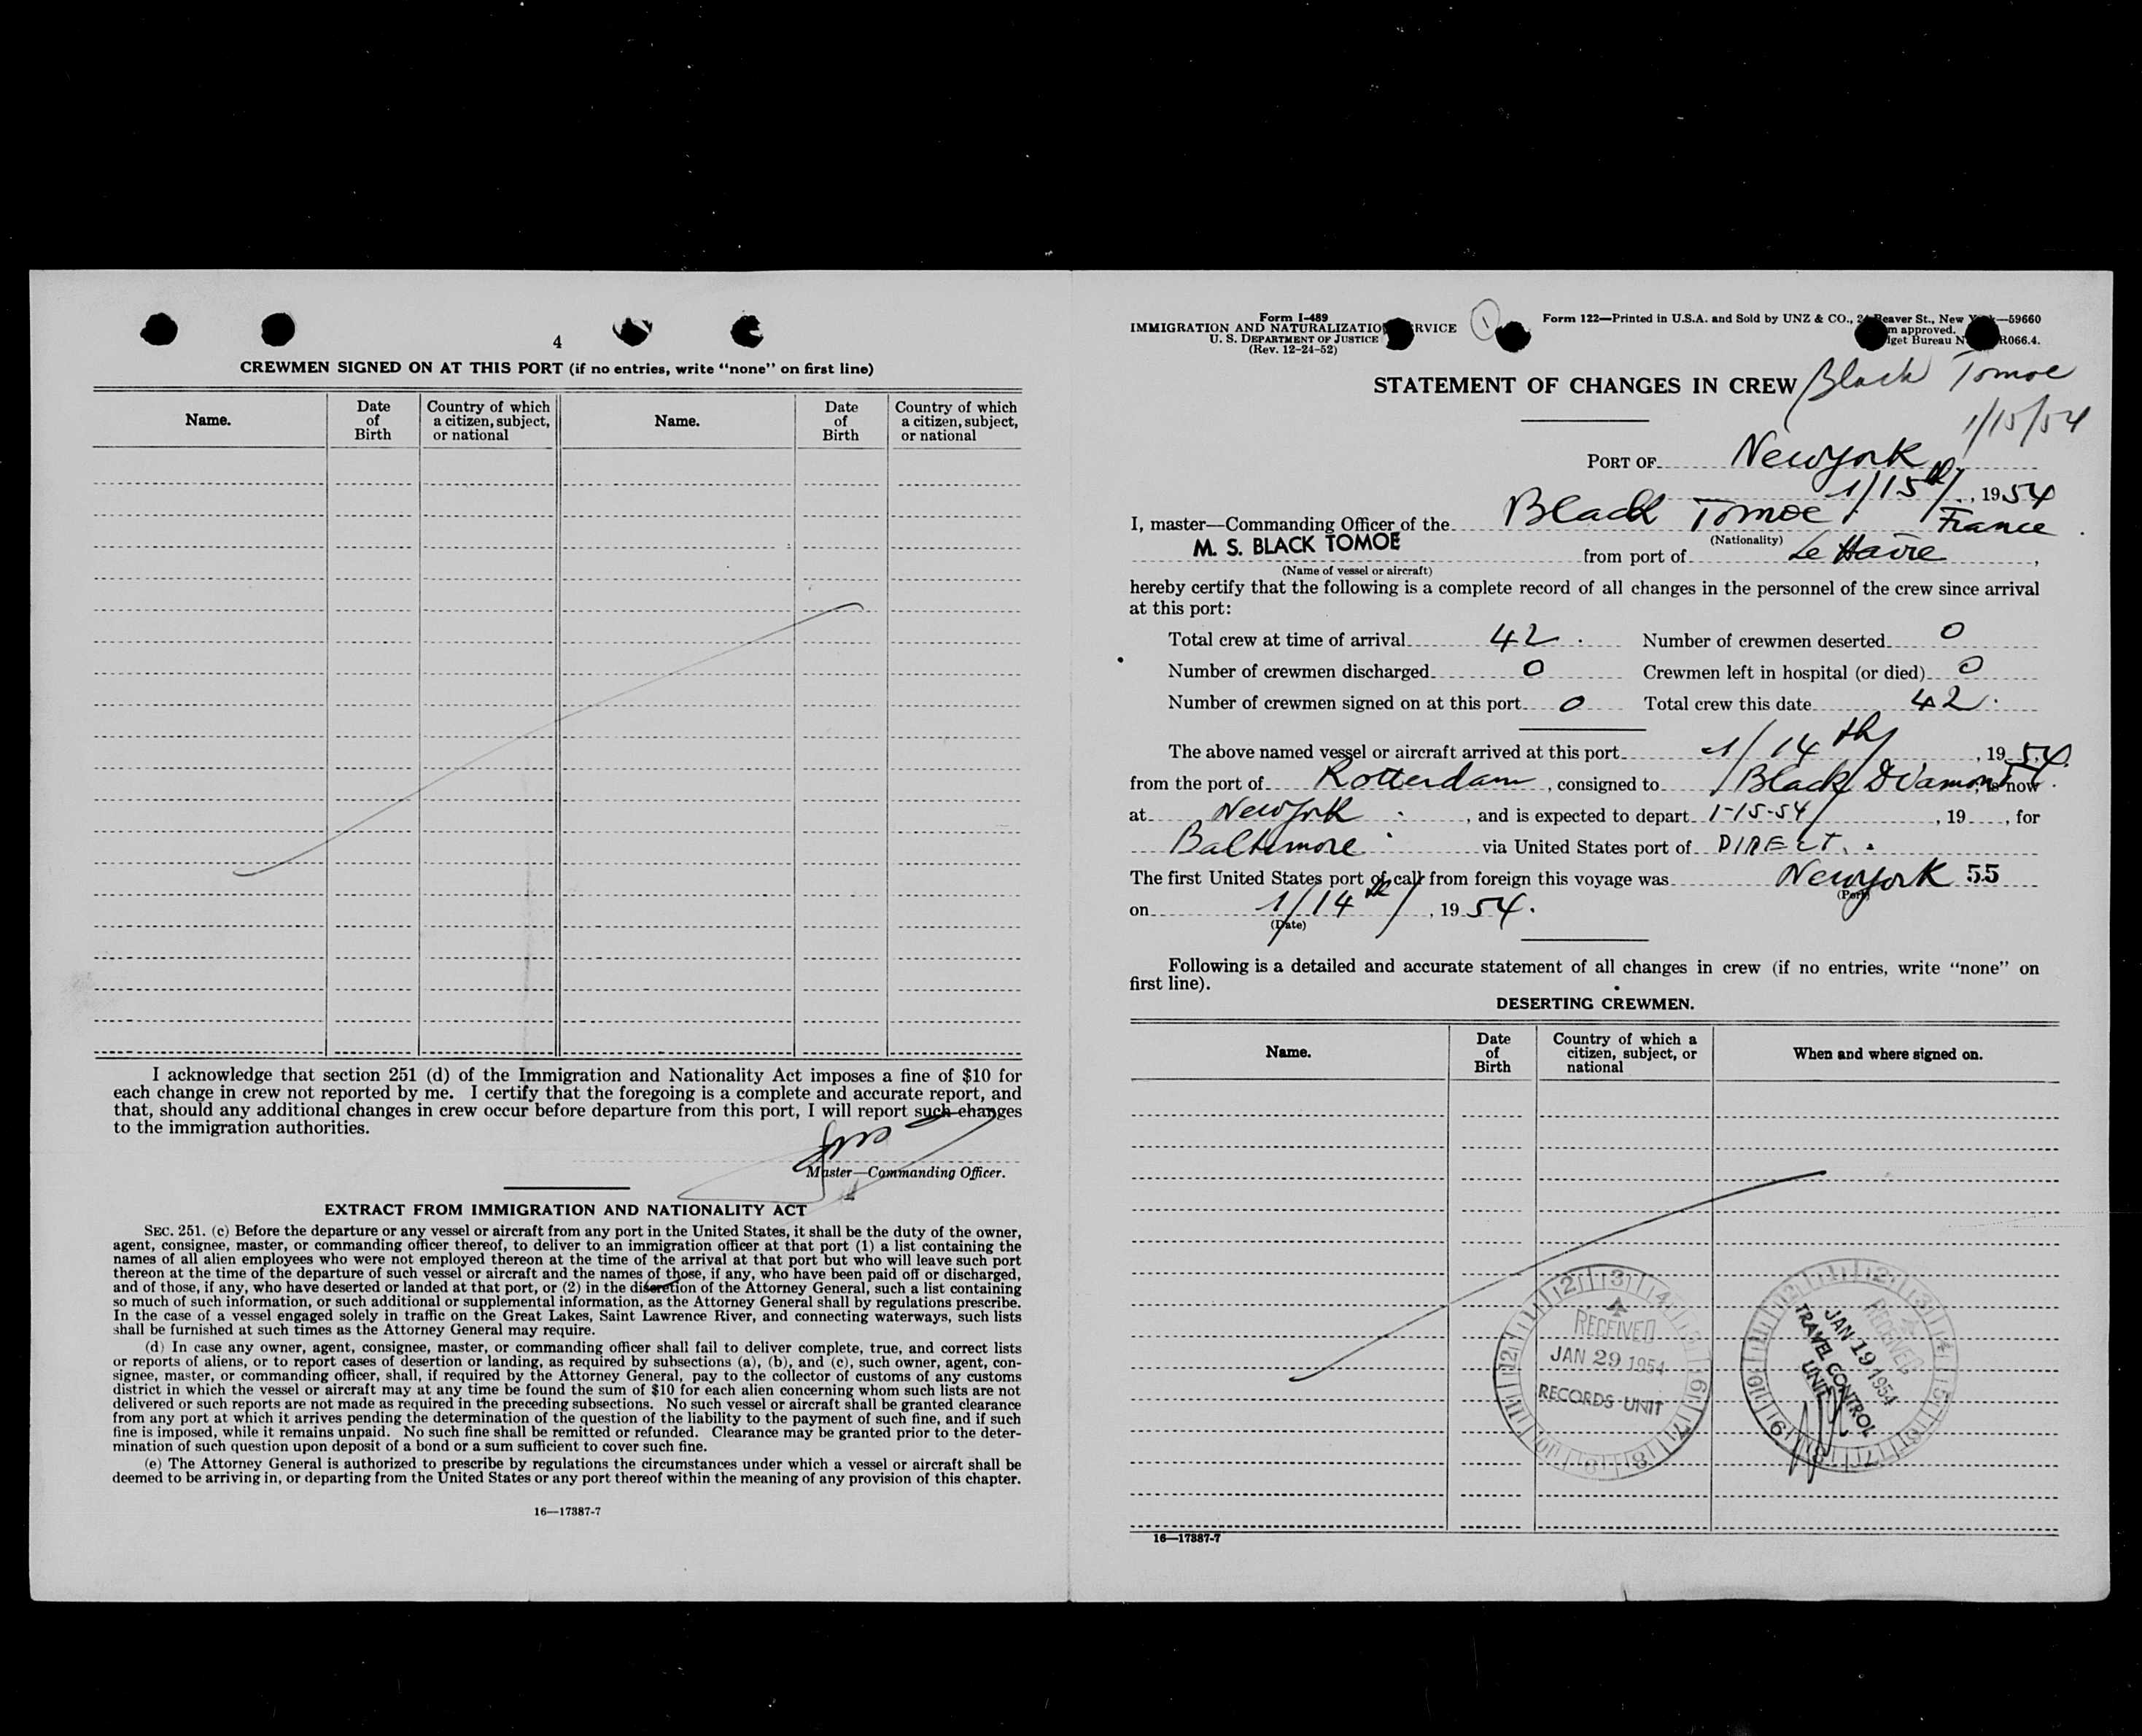 4
CREWMEN SIGNED ON AT THIS PORT (if no entries, write "none" on first line)
Name.
Date
of
Birth
Country of which
a citizen, subject,
or national
Name.
Date
of
Birth
Country of which
a citizen, subject,
or national
I acknowledge that section 251 (d) of the Immigration and Nationality Act imposes a fine of $10 for
each change in crew not reported by me. I certify that the foregoing is a complete and accurate report, and
that, should any additional changes in crew occur before departure from this port, I will report such changes
to the immigration authorities.
Master—Commanding Officer.
EXTRACT FROM IMMIGRATION AND NATIONALITY ACT
SEC. 251. (c) Before the departure or any vessel or aircraft from any port in the United States, it shall be the duty of the owner,
agent, consignee, master, or commanding officer thereof, to deliver to an immigration officer at that port (1) a list containing the
names of all alien employees who were not employed thereon at the time of the arrival at that port but who will leave such port
thereon at the time of the departure of such vessel or aircraft and the names of those, if any, who have been paid off or discharged,
and of those, if any, who have deserted or landed at that port, or (2) in the discretion of the Attorney General, such a list containing
so much of such information, or such additional or supplemental information, as the Attorney General shall by regulations prescribe.
In the case of a vessel engaged solely in traffic on the Great Lakes, Saint Lawrence River, and connecting waterways, such lists
shall be furnished at such times as the Attorney General may require.
(d) In case any owner, agent, consignee, master, or commanding officer shall fail to deliver complete, true, and correct lists
or reports of aliens, or to report cases of desertion or landing, as required by subsections (a), (b), and (c), such owner, agent, con-
signee, master, or commanding officer, shall, if required by the Attorney General, pay to the collector of customs of any customs
district in which the vessel or aircraft may at any time be found the sum of $10 for each alien concerning whom such lists are not
delivered or such reports are not made as required in the preceding subsections. No such vessel or aircraft shall be granted clearance
from any port at which it arrives pending the determination of the question of the liability to the payment of such fine, and if such
fine is imposed, while it remains unpaid. No such fine shall be remitted or refunded. Clearance may be granted prior to the deter-
mination of such question upon deposit of a bond or a sum sufficient to cover such fine.
(e) The Attorney General is authorized to prescribe by regulations the circumstances under which a vessel or aircraft shall be
deemed to be arriving in, or departing from the United States or any port thereof within the meaning of any provision of this chapter.
16—17387-7
Form I-489
IMMIGRATION AND NATURALIZATIO RVICE
U. S. DEPARTMENT OF JUSTICE
(Rev. 12-24-52)
1
Form 122—Printed in U.S.A. and Sold by UNZ & CO., 24 Beaver St., New Y k—59660
m approved.
get Bureau N R066.4.
STATEMENT OF CHANGES IN CREW Black Tomoe
1/15/54
PORT OF New york
1/15th/, 1954
I, master—Commanding Officer of the Black Tomoe. France
(Nationality)
M. S. BLACK TOMOE from port of Le Havre,
(Name of vessel or aircraft)
hereby certify that the following is a complete record of all changes in the personnel of the crew since arrival
at this port:
Total crew at time of arrival 42. Number of crewmen deserted 0
Number of crewmen discharged 0 Crewmen left in hospital (or died) 0
Number of crewmen signed on at this port 0 Total crew this date 42.
The above named vessel or aircraft arrived at this port 1/14th/, 1954.
from the port of Rotterdam, consigned to Black Diamond, is now
at New York, and is expected to depart 1-15-54, 19 , for
Baltimore via United States port of DIRECT.
The first United States port of call from foreign this voyage was New york 55
(Port)
on 1/14th/, 1954.
(Date)
Following is a detailed and accurate statement of all changes in crew (if no entries, write "none" on
first line).
DESERTING CREWMEN.
Name.
Date
of
Birth
Country of which a
citizen, subject, or
national
When and where signed on.
RECEIVED
JAN 29 1954
RECORDS UNIT
RECEIVED
JAN 19 1954
TRAVEL CONTROL
UNIT
16—17387-7